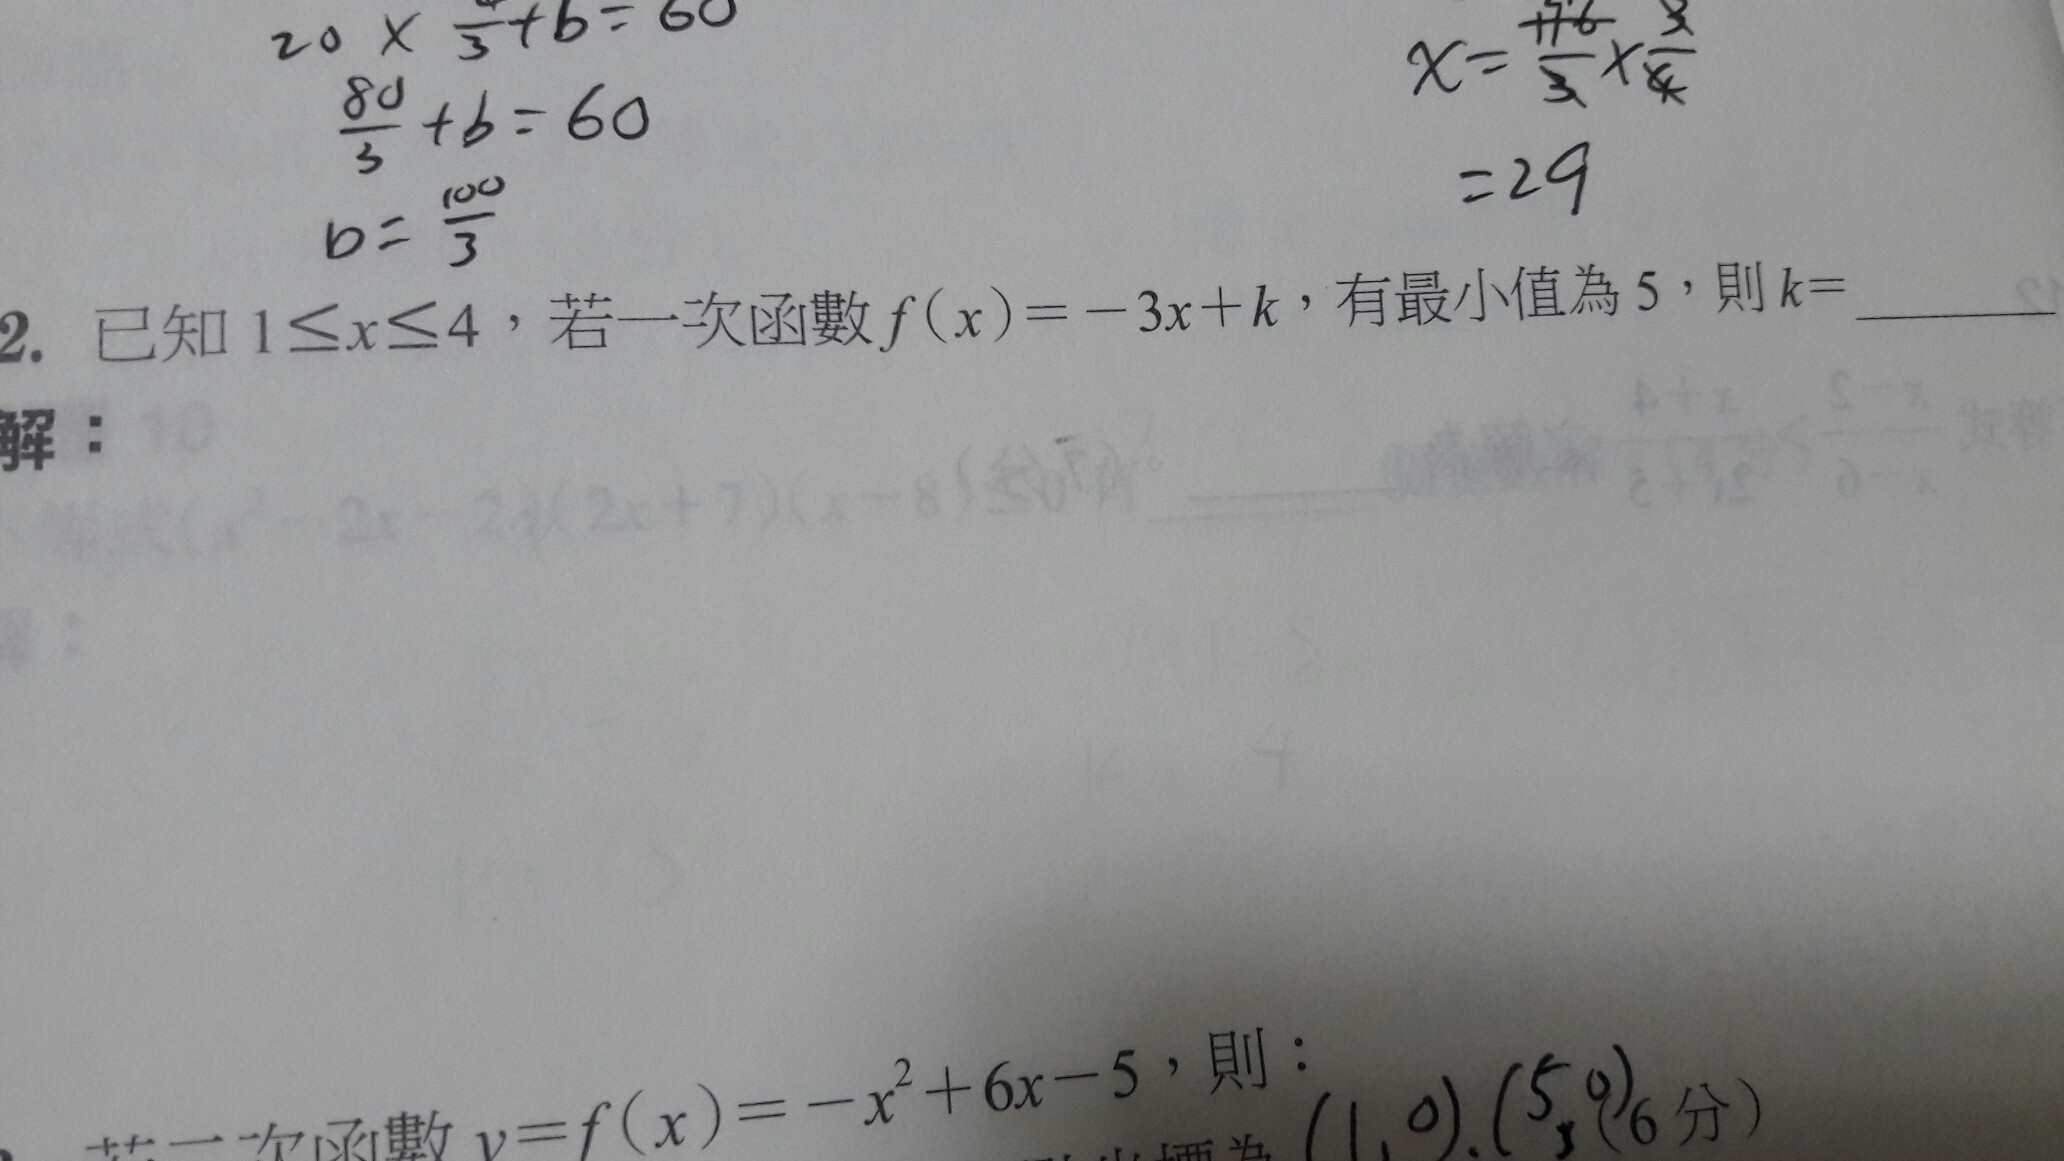 20 × /3 + b = 60
80/3 + b = 60
b = 100/3
x = 116/3 × 3/4
= 29
2. 已知 1≤x≤4，若一次函數 f(x)=-3x+k，有最小值為 5，則 k=______
解：
若二次函數 y=f(x)=-x²+6x-5，則：
(1,0).(5,0) (6分)